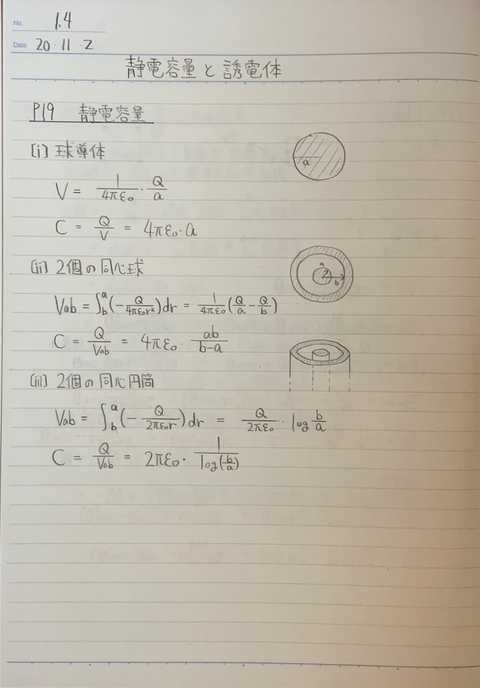 No. 1.4
Date 20・11・2
静電容量と誘電体
P19 静電容量
(i) 球導体
a
V = 1/4πε₀・Q/a
C = Q/V = 4πε₀・a
(ii) 2個の同心球
a
b
Vab = ∫_b^a(-Q/4πε₀r²)dr = 1/4πε₀(Q/a - Q/b)
C = Q/Vab = 4πε₀・ab/b-a
(iii) 2個の同心円筒
Vab = ∫_b^a(-Q/2πε₀r)dr = Q/2πε₀・log b/a
C = Q/Vab = 2πε₀・1/log(b/a)